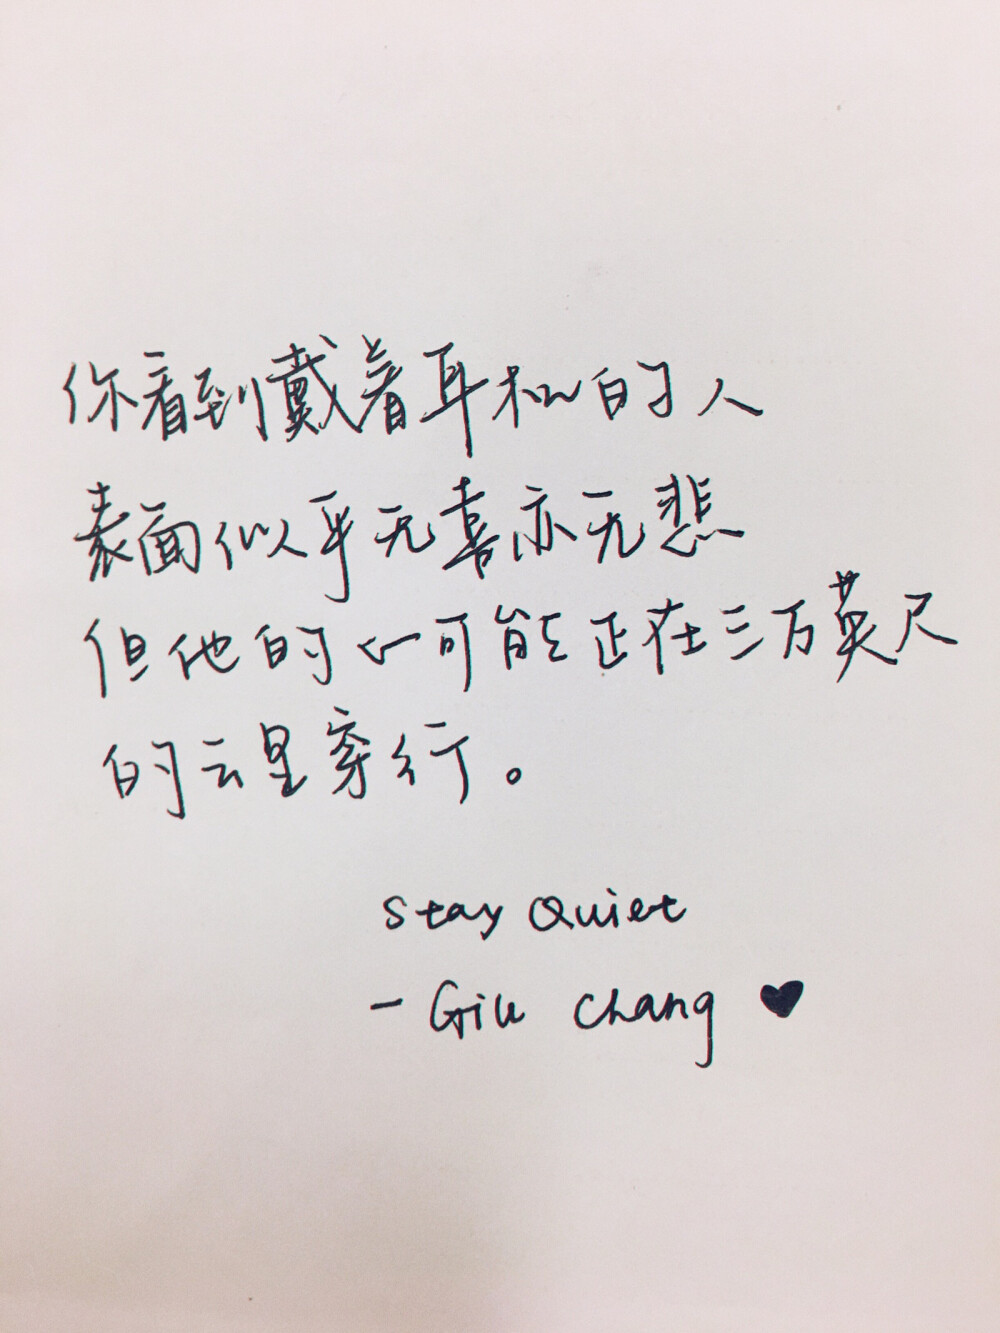 你看到戴着耳机的人
表面似乎无喜亦无悲
但他的心可能正在三万英尺
的云里穿行。
Stay Quiet
- Giu Chang ♥